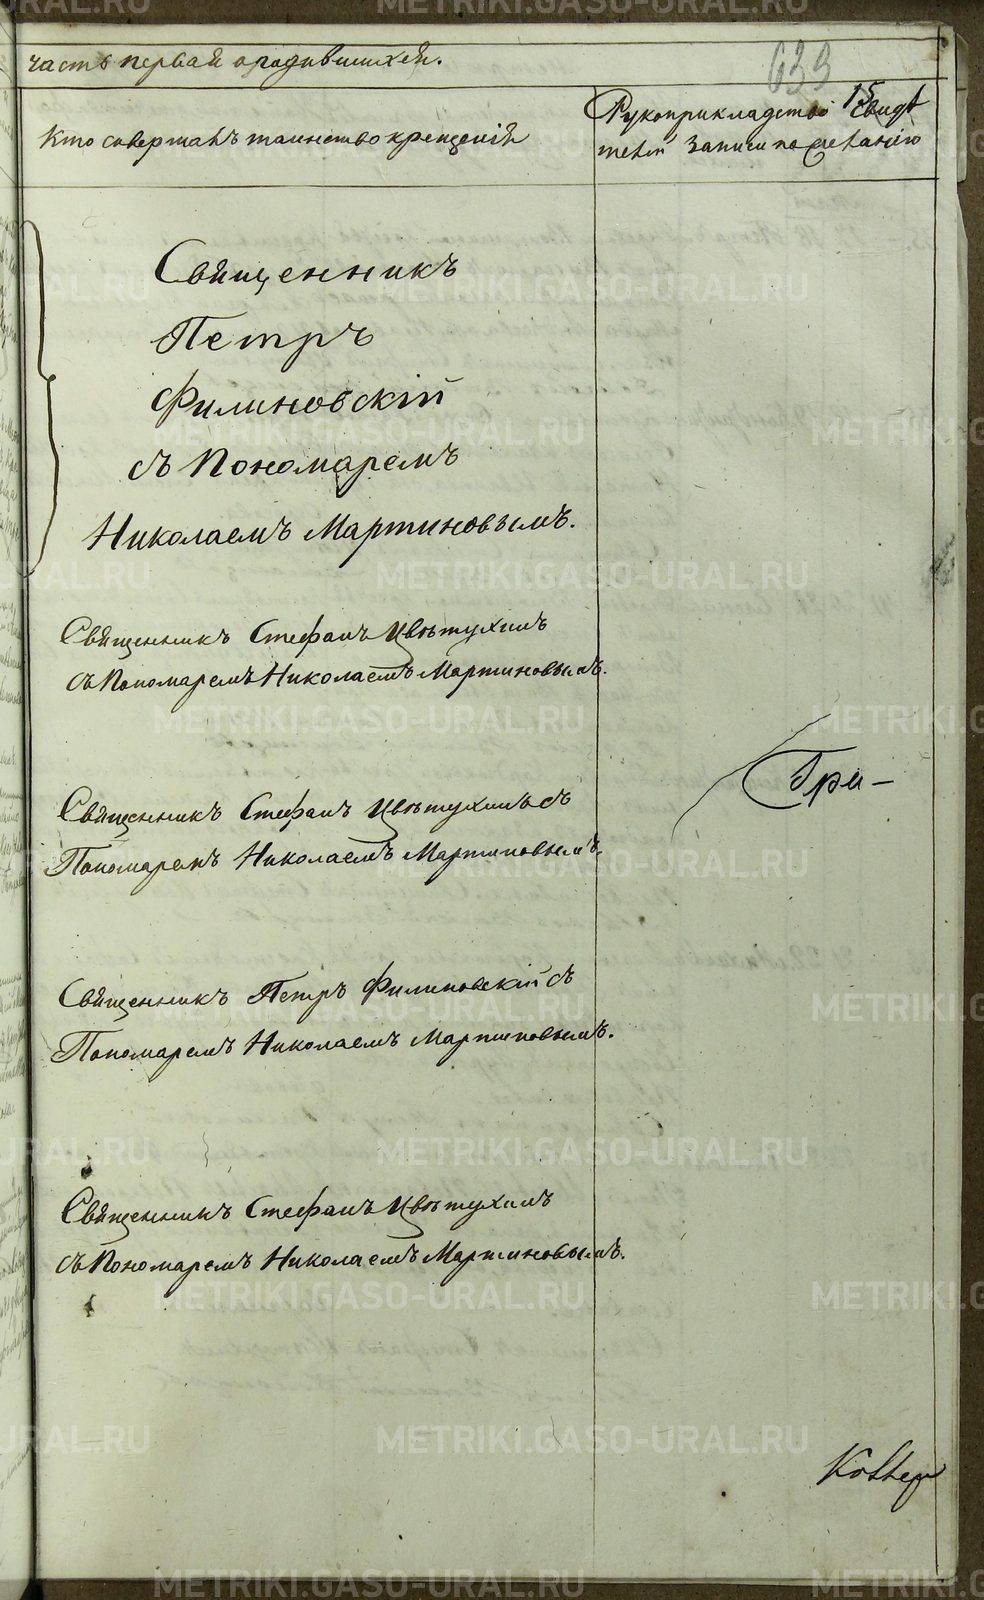 часть первая о родившихся.
639
15
Кто совершалъ таинство крещенія
Рукоприкладство свидѣ
телей записи по желанію
Священникъ
Петръ
Филиновскій
съ Пономаремъ
Николаемъ Мартиновымъ.
Священникъ Стефанъ Цвѣтухинъ
съ Пономаремъ Николаемъ Мартиновымъ.
Гри-
Священникъ Стефанъ Цвѣтухинъ съ
Пономаремъ Николаемъ Мартиновымъ.
Священникъ Петръ Филиновскій съ
Пономаремъ Николаемъ Мартиновымъ.
Священникъ Стефанъ Цвѣтухинъ
съ Пономаремъ Николаемъ Мартиновымъ.
METRIKI.GASO-URAL.RU